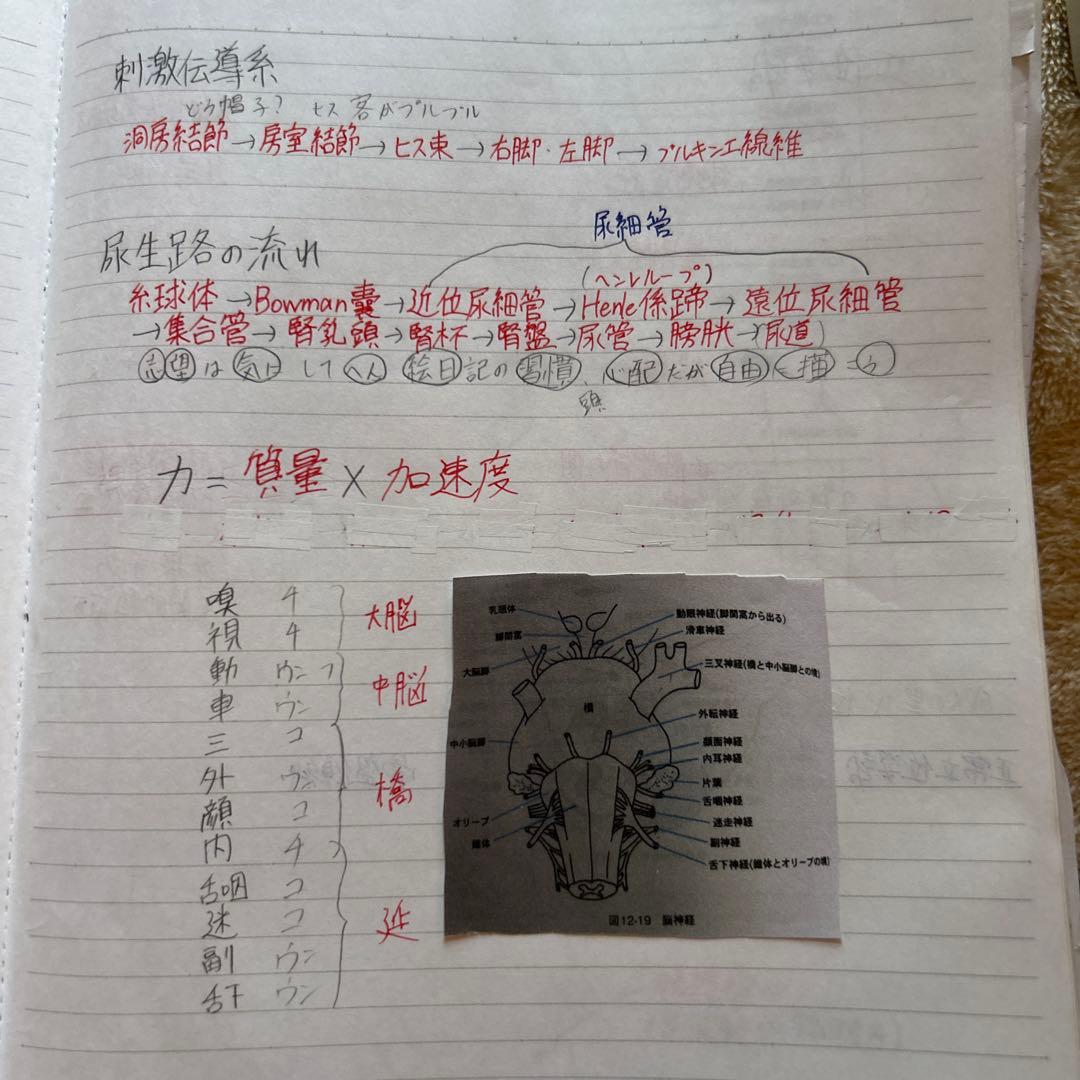 刺激伝導系
どう帽子? ヒス 客がプルプル
洞房結節→房室結節→ヒス束→右脚・左脚→プルキンエ線維
尿細管
尿生路の流れ
(ヘンレループ)
糸球体→Bowman嚢→近位尿細管→Henle係蹄→遠位尿細管
→集合管→腎乳頭→腎杯→腎盤→尿管→膀胱→(尿道)
志望は気にしてへん 絵日記の習慣、心配だが自由に描こう
力=質量×加速度
嗅 チ
視 チ
大脳
動 ウンフ
車 ウン
中脳
三 コ
外 ウン
顔 コ
橋
内 チ
舌咽 コ
迷 コ
副 ウン
舌下 ウン
延
乳頭体
脚間窩
大脳脚
中小脳脚
オリーブ
錐体
橋
動眼神経(脚間窩から出る)
滑車神経
三叉神経(橋と中小脳脚との境)
外転神経
顔面神経
内耳神経
片葉
舌咽神経
迷走神経
副神経
舌下神経(錐体とオリーブの境)
図12-19 脳神経